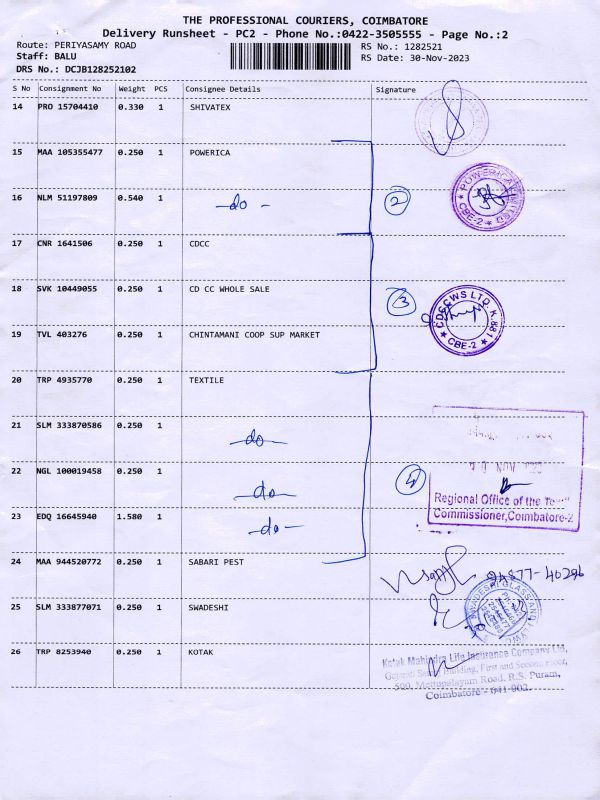 THE PROFESSIONAL COURIERS, COIMBATORE
Delivery Runsheet - PC2 - Phone No.:0422-3505555 - Page No.:2
Route: PERIYASAMY ROAD RS No.: 1282521
Staff: BALU RS Date: 30-Nov-2023
DRS No.: DCJB128252102
S No Consignment No Weight PCS Consignee Details Signature
14 PRO 15704410 0.330 1 SHIVATEX
15 MAA 105355477 0.250 1 POWERICA
16 NLM 51197809 0.540 1 -do- 2
POWERICA LIMITED
★ CBE-2 ★
17 CNR 1641506 0.250 1 CDCC
18 SVK 10449055 0.250 1 CD CC WHOLE SALE 3
CDCCWS LTD. K.881
★ CBE-2 ★
19 TVL 403276 0.250 1 CHINTAMANI COOP SUP MARKET
20 TRP 4935770 0.250 1 TEXTILE
21 SLM 333870586 0.250 1 -do-
22 NGL 100019458 0.250 1 -do- 4
Regional Office of the
Commissioner, Coimbatore-2
23 EDQ 16645940 1.580 1 -do-
24 MAA 944520772 0.250 1 SABARI PEST
94877-40296
25 SLM 333877071 0.250 1 SWADESHI
SWADESHI GLASS AND
26 TRP 8253940 0.250 1 KOTAK
Kotak Mahindra Life Insurance Company Ltd,
Building, First and Second Floor,
500, Mettupalayam Road, R.S. Puram,
Coimbatore - 641 002.